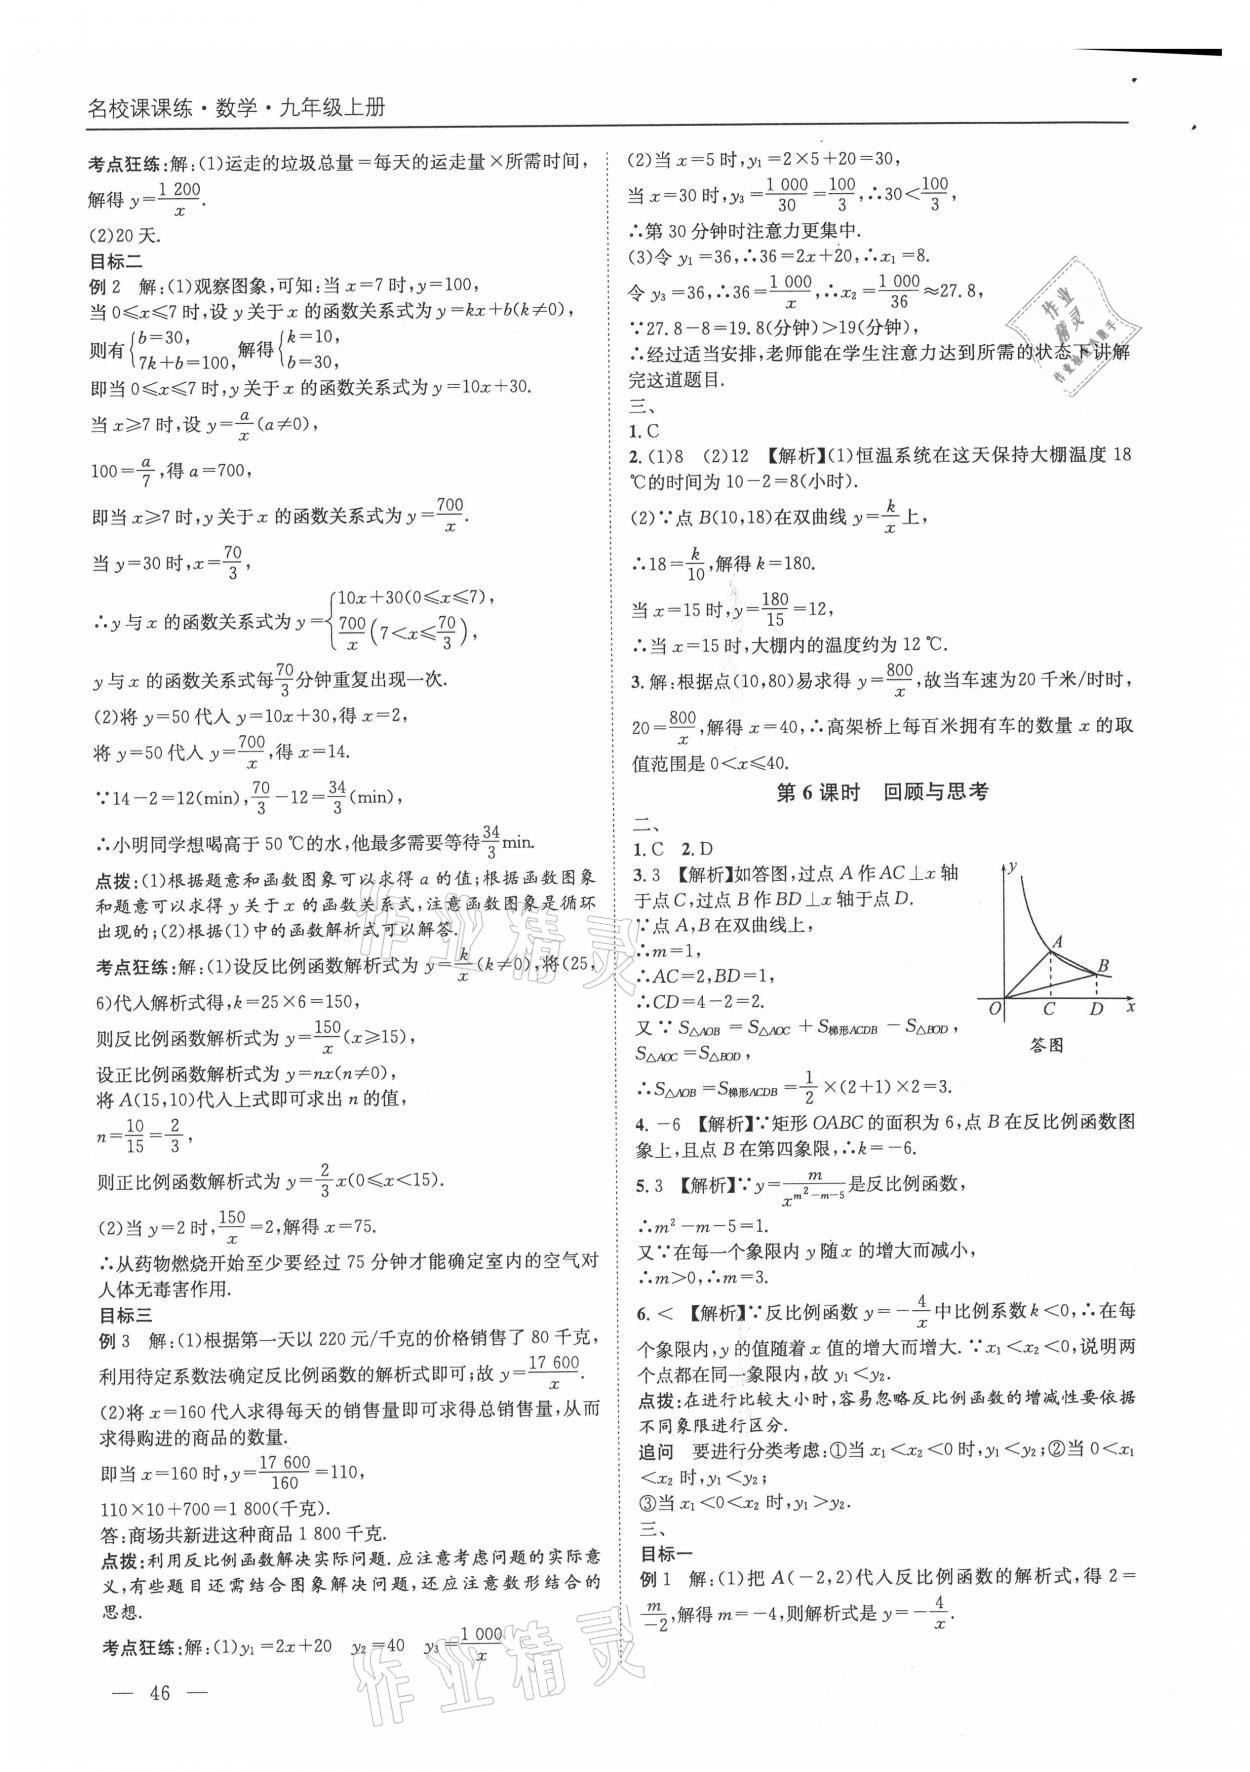 名校课课练·数学·九年级上册
考点狂练:解:(1)运走的垃圾总量=每天的运走量×所需时间,
解得 y=1 200/x.
(2)20天.
目标二
例2 解:(1)观察图象,可知:当 x=7 时,y=100,
当 0≤x≤7 时,设 y 关于 x 的函数关系式为 y=kx+b(k≠0),
则有{b=30, 7k+b=100, 解得{k=10, b=30,
即当 0≤x≤7 时,y 关于 x 的函数关系式为 y=10x+30.
当 x≥7 时,设 y=a/x(a≠0),
100=a/7,得 a=700,
即当 x≥7 时,y 关于 x 的函数关系式为 y=700/x.
当 y=30 时,x=70/3,
∴y 与 x 的函数关系式为 y={10x+30(0≤x≤7), 700/x(7<x≤70/3),
y 与 x 的函数关系式每70/3分钟重复出现一次.
(2)将 y=50 代人 y=10x+30,得 x=2,
将 y=50 代人 y=700/x,得 x=14.
∵14-2=12(min),70/3-12=34/3(min),
∴小明同学想喝高于 50 ℃的水,他最多需要等待34/3min.
点拨:(1)根据题意和函数图象可以求得 a 的值;根据函数图象
和题意可以求得 y 关于 x 的函数关系式,注意函数图象是循环
出现的;(2)根据(1)中的函数解析式可以解答.
考点狂练:解:(1)设反比例函数解析式为 y=k/x(k≠0),将(25,
6)代人解析式得,k=25×6=150,
则反比例函数解析式为 y=150/x(x≥15),
设正比例函数解析式为 y=nx(n≠0),
将 A(15,10)代人上式即可求出 n 的值,
n=10/15=2/3,
则正比例函数解析式为 y=2/3x(0≤x<15).
(2)当 y=2 时,150/x=2,解得 x=75.
∴从药物燃烧开始至少要经过 75 分钟才能确定室内的空气对
人体无毒害作用.
目标三
例3 解:(1)根据第一天以 220 元/千克的价格销售了 80 千克,
利用待定系数法确定反比例函数的解析式即可;故 y=17 600/x.
(2)将 x=160 代人求得每天的销售量即可求得总销售量,从而
求得购进的商品的数量.
即当 x=160 时,y=17 600/160=110,
110×10+700=1 800(千克).
答:商场共新进这种商品 1 800 千克.
点拨:利用反比例函数解决实际问题.应注意考虑问题的实际意
义,有些题目还需结合图象解决问题,还应注意数形结合的
思想.
考点狂练:解:(1)y₁=2x+20 y₂=40 y₃=1 000/x
— 46 —
(2)当 x=5 时,y₁=2×5+20=30,
当 x=30 时,y₃=1 000/30=100/3,∴30<100/3,
∴第 30 分钟时注意力更集中.
(3)令 y₁=36,∴36=2x+20,∴x₁=8.
令 y₃=36,∴36=1 000/x,∴x₂=1 000/36≈27.8,
∵27.8-8=19.8(分钟)>19(分钟),
∴经过适当安排,老师能在学生注意力达到所需的状态下讲解
完这道题目.
三、
1.C
2.(1)8 (2)12 【解析】(1)恒温系统在这天保持大棚温度 18
℃的时间为 10-2=8(小时).
(2)∵点 B(10,18)在双曲线 y=k/x上,
∴18=k/10,解得 k=180.
当 x=15 时,y=180/15=12,
∴当 x=15 时,大棚内的温度约为 12 ℃.
3.解:根据点(10,80)易求得 y=800/x,故当车速为20 千米/时时,
20=800/x,解得 x=40,∴高架桥上每百米拥有车的数量 x 的取
值范围是 0<x≤40.
第6课时 回顾与思考
二、
1.C 2.D
3.3 【解析】如答图,过点 A 作 AC⊥x 轴
于点 C,过点 B 作 BD⊥x 轴于点 D.
∵点 A,B 在双曲线上,
∴m=1,
∴AC=2,BD=1,
∴CD=4-2=2.
又∵S△AOB=S△AOC+S梯形ACDB-S△BOD,
S△AOC=S△BOD,
∴S△AOB=S梯形ACDB=1/2×(2+1)×2=3.
y
A
B
O C D x
答图
4.-6 【解析】∵矩形 OABC 的面积为 6,点 B 在反比例函数图
象上,且点 B 在第四象限,∴k=-6.
5.3 【解析】∵y=m/x^(m²-m-5)是反比例函数,
∴m²-m-5=1.
又∵在每一个象限内 y 随 x 的增大而减小,
∴m>0,∴m=3.
6.< 【解析】∵反比例函数 y=-4/x中比例系数 k<0,∴在每
个象限内,y 的值随着 x 值的增大而增大.∵x₁<x₂<0,说明两
个点都在同一象限内,故 y₁<y₂.
点拨:在进行比较大小时,容易忽略反比例函数的增减性要依据
不同象限进行区分.
追问 要进行分类考虑:①当 x₁<x₂<0 时,y₁<y₂;②当 0<x₁
<x₂ 时,y₁<y₂;
③当 x₁<0<x₂ 时,y₁>y₂.
三、
目标一
例1 解:(1)把 A(-2,2)代人反比例函数的解析式,得 2=
m/-2,解得 m=-4,则解析式是 y=-4/x.
作业精灵
作业精灵
作业
精灵